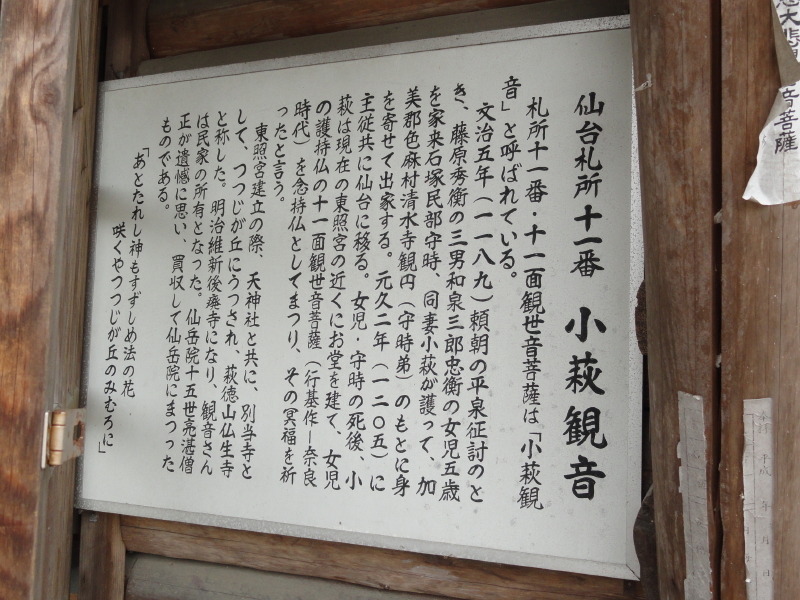 仙台札所十一番 小萩観音
札所十一番・十一面観世音菩薩は「小萩観
音」と呼ばれている。
文治五年(一一八九)頼朝の平泉征討のと
き、藤原秀衡の三男和泉三郎忠衡の女児五歳
を家来石塚民部守時、同妻小萩が護って、加
美郡色麻村清水寺観円(守時弟)のもとに身
を寄せて出家する。元久二年(一二〇五)に
主従共に仙台に移る。女児・守時の死後、小
萩は現在の東照宮の近くにお堂を建て、女児
の護持仏の十一面観世音菩薩(行基作ー奈良
時代)を念持仏としてまつり、その冥福を祈
ったと言う。
東照宮建立の際、天神社と共に、別当寺と
して、つつじが丘にうつされ、萩徳山仏生寺
と称した。明治維新後廃寺になり、観音さん
は民家の所有となった。仙岳院十五世亮湛僧
正が遺憾に思い、買収して仙岳院にまつった
ものである。
「あとたれし神もすずしめ法の花
咲くやつつじが丘のみむろに」
大悲
音菩薩
平成 年 月 日